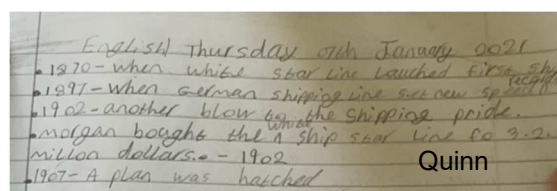 English Thursday 07th January 2021
• 1870 - when white star line lauched first ship
• 1897 - when German shipping line set new speed record
• 1902 - another blow to the shipping pride.
• Morgan bought the white ship star line fo 3.2.
millon dollars. - 1902
1907 - A plan was hatched
Quinn